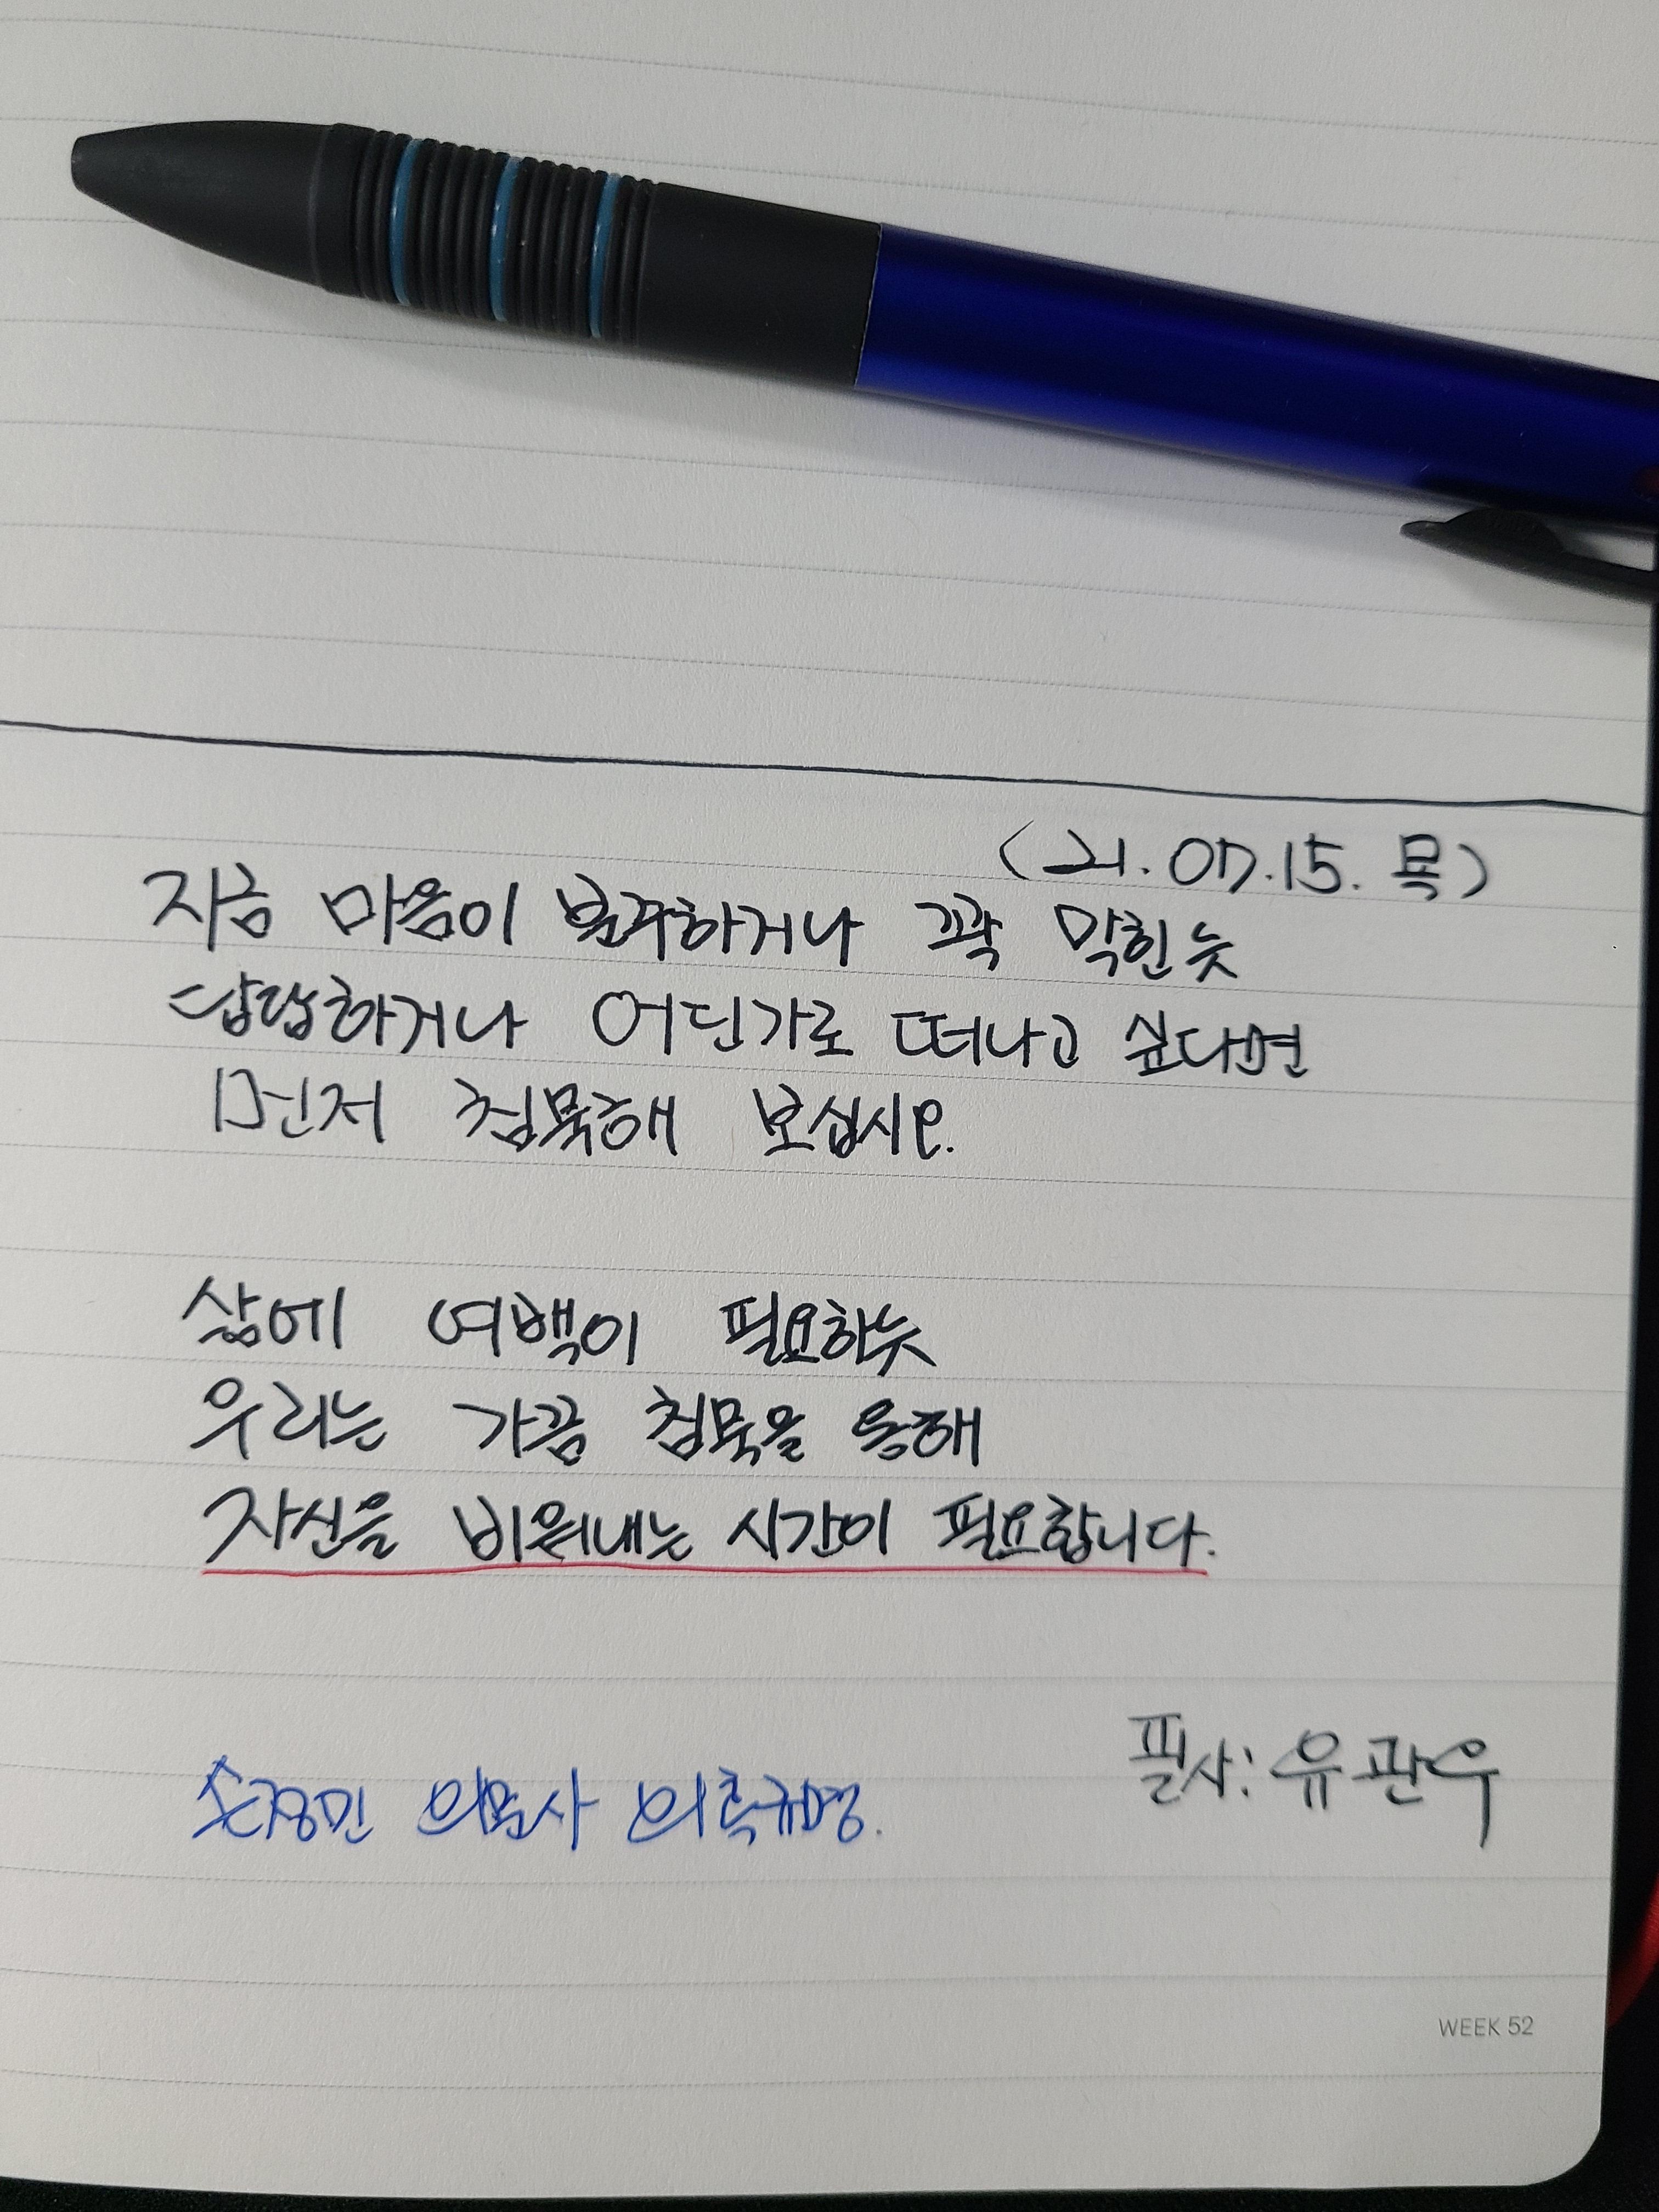 (21.07.15. 목)
지금 마음이 분주하거나 꽉 막힌듯
답답하거나 어딘가로 떠나고 싶다면
먼저 침묵해 보십시요.
삶에 여백이 필요하듯
우리는 가끔 침묵을 통해
자신을 비워내는 시간이 필요합니다.
필사: 유관우
손정민 의문사 의혹규명.
WEEK 52